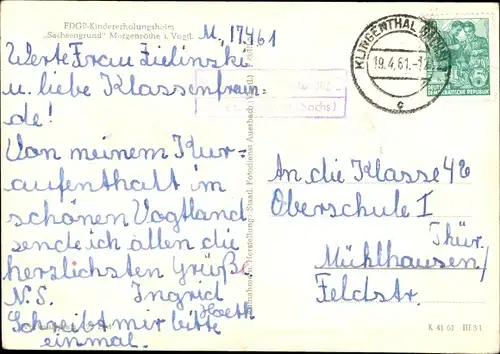 FDGB-Kindererholungsheim
„Sachsengrund" Morgenröthe i. Vogtl.
M., 17.4.61
Werte Frau Zielinski
u. liebe Klassenfreun-
de!
Von meinem Kur-
aufenthalt im
schönen Vogtland
sende ich allen die
herzlichsten Grüße.
Ingrid
Hoeth
N.S.
Schreibt mir bitte
einmal.
KLINGENTHAL
19.4.61.-12
c
DEUTSCHE
DEMOKRATISCHE REPUBLIK
5
(Sachs)
An die Klasse 4b
Oberschule I
Mühlhausen/
Thür.
Feldstr.
Herstellung: Staatl. Fotodienst Auerbach (Vogtl.)
K 41 61 III 8 1